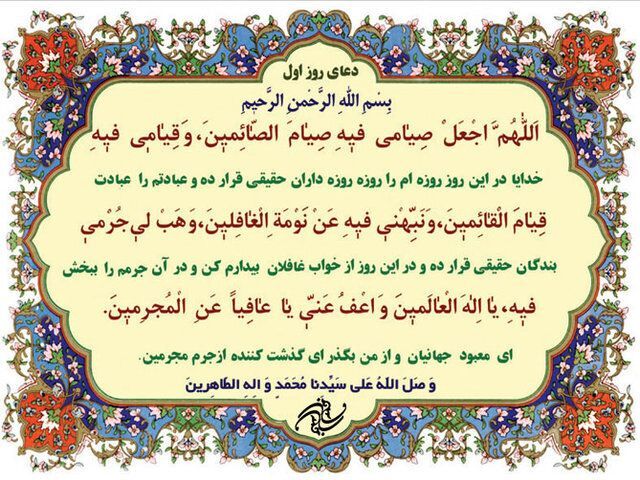 دعای روز اول
بِسْمِ اللهِ الرَّحْمنِ الرَّحیمِ
اَللّهُمَّ اجْعَلْ صِیامی فیهِ صِیامَ الصّائِمینَ، وَ قِیامی فیهِ
خدایا در این روز روزه ام را روزه روزه داران حقیقی قرار ده و عبادتم را عبادت
قِیامَ الْقائِمینَ، وَنَبِّهْنی فیهِ عَنْ نَوْمَةِ الْغافِلینَ، وَهَبْ لی جُرْمی
بندگان حقیقی قرار ده و در این روز از خواب غافلان بیدارم کن و در آن جرمم را ببخش
فیهِ، یا اِلهَ الْعالَمینَ وَ اعْفُ عَنّی یا عافِیاً عَنِ الْمُجرِمینَ.
ای معبود جهانیان و از من بگذر ای گذشت کننده ازجرم مجرمین.
وَ صَلَ اللهُ عَلی سَیِّدنا مُحَمَدٍ وَ الِهِ الطّاهِرینَ